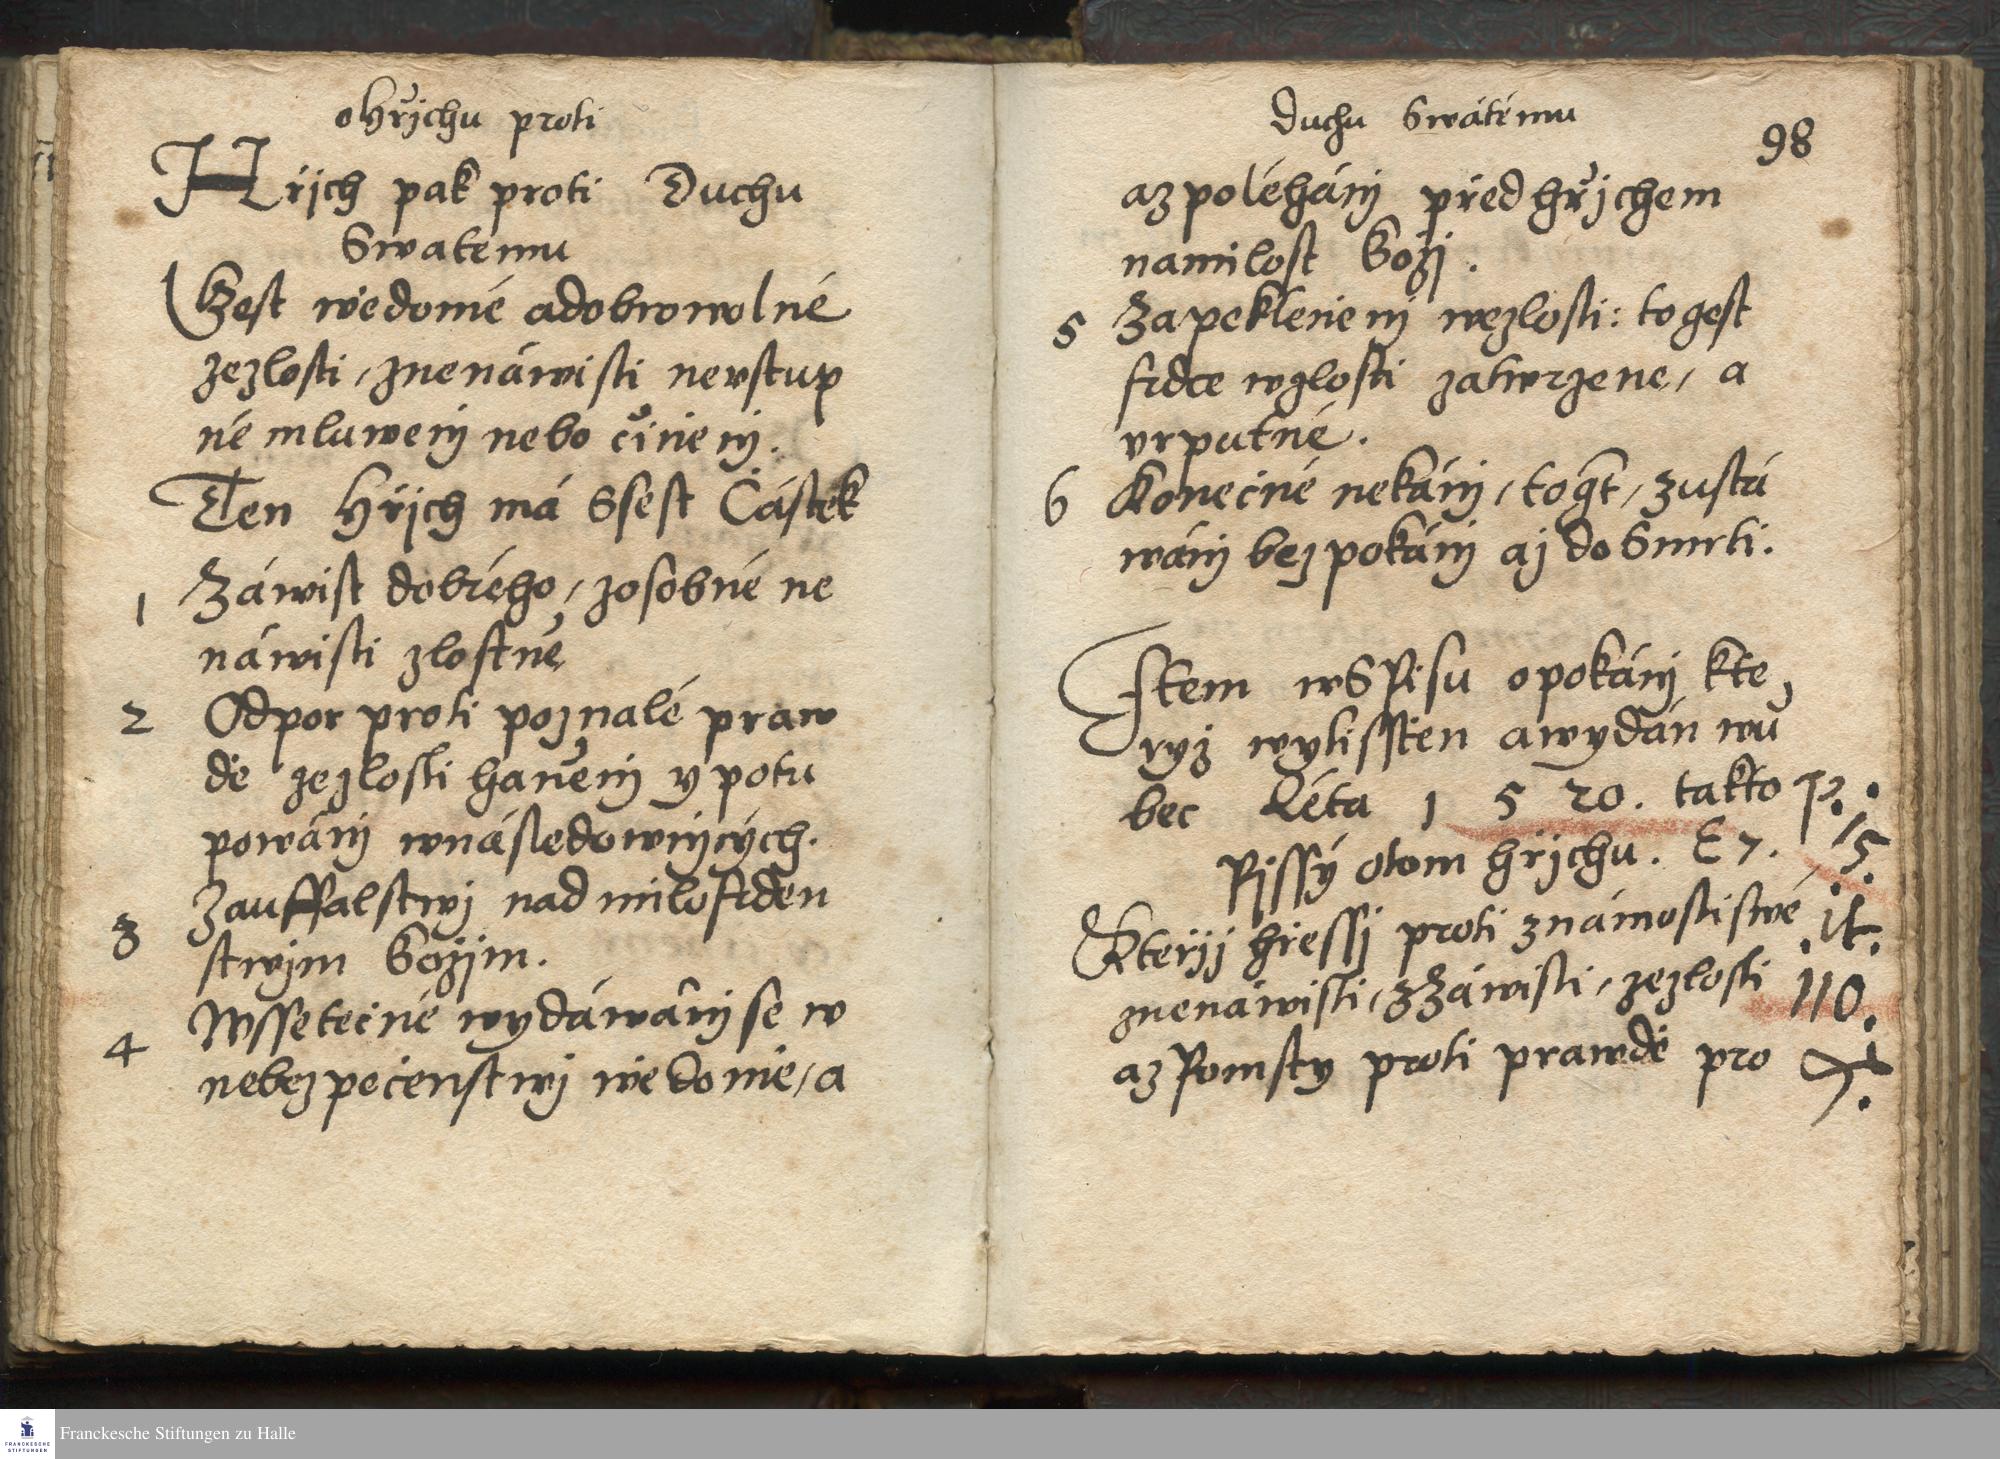 o Hřjchu proti
Hřjch pak proti Duchu
Swatému
Gest wědomé a dobrowolné
ze zlosti, z nenáwisti nevstup
né mluwenj nebo činěnj.
Ten Hřjch má Ssest Částek
1 Záwist dobrého, z osobné ne
náwisti zlostné
2 Odpor proti poznalé praw
dě ze zlosti hančenj y potu
powánj w následownjcých.
3 Zauffalstwj nad milosrden
stwjm Božjm.
4 Wssetečné wydáwánj se w
nebezpečenstwj wědomě, a
Duchu Swatému
98
a zpoléhánj před hřjchem
na milost Božj.
5 Zapeklenj w zlosti: to gest
srdce w zlosti zatwrzene, a
vrputné.
6 Konečné nekánj, to gt, zustá
wánj bez pokánj až do Smrti.
Item w Spisu o pokánj kte
ryž wytisstěn a wydán wů
bec Léta 1 5 20. takto p.
Pjssý o tom hřjchu. E 7. 15.
Kteřjž hřessj proti známosti swé it.
z nenáwisti, z Záwisti, ze zlosti 110.
a z Pomsty proti prawdě pro